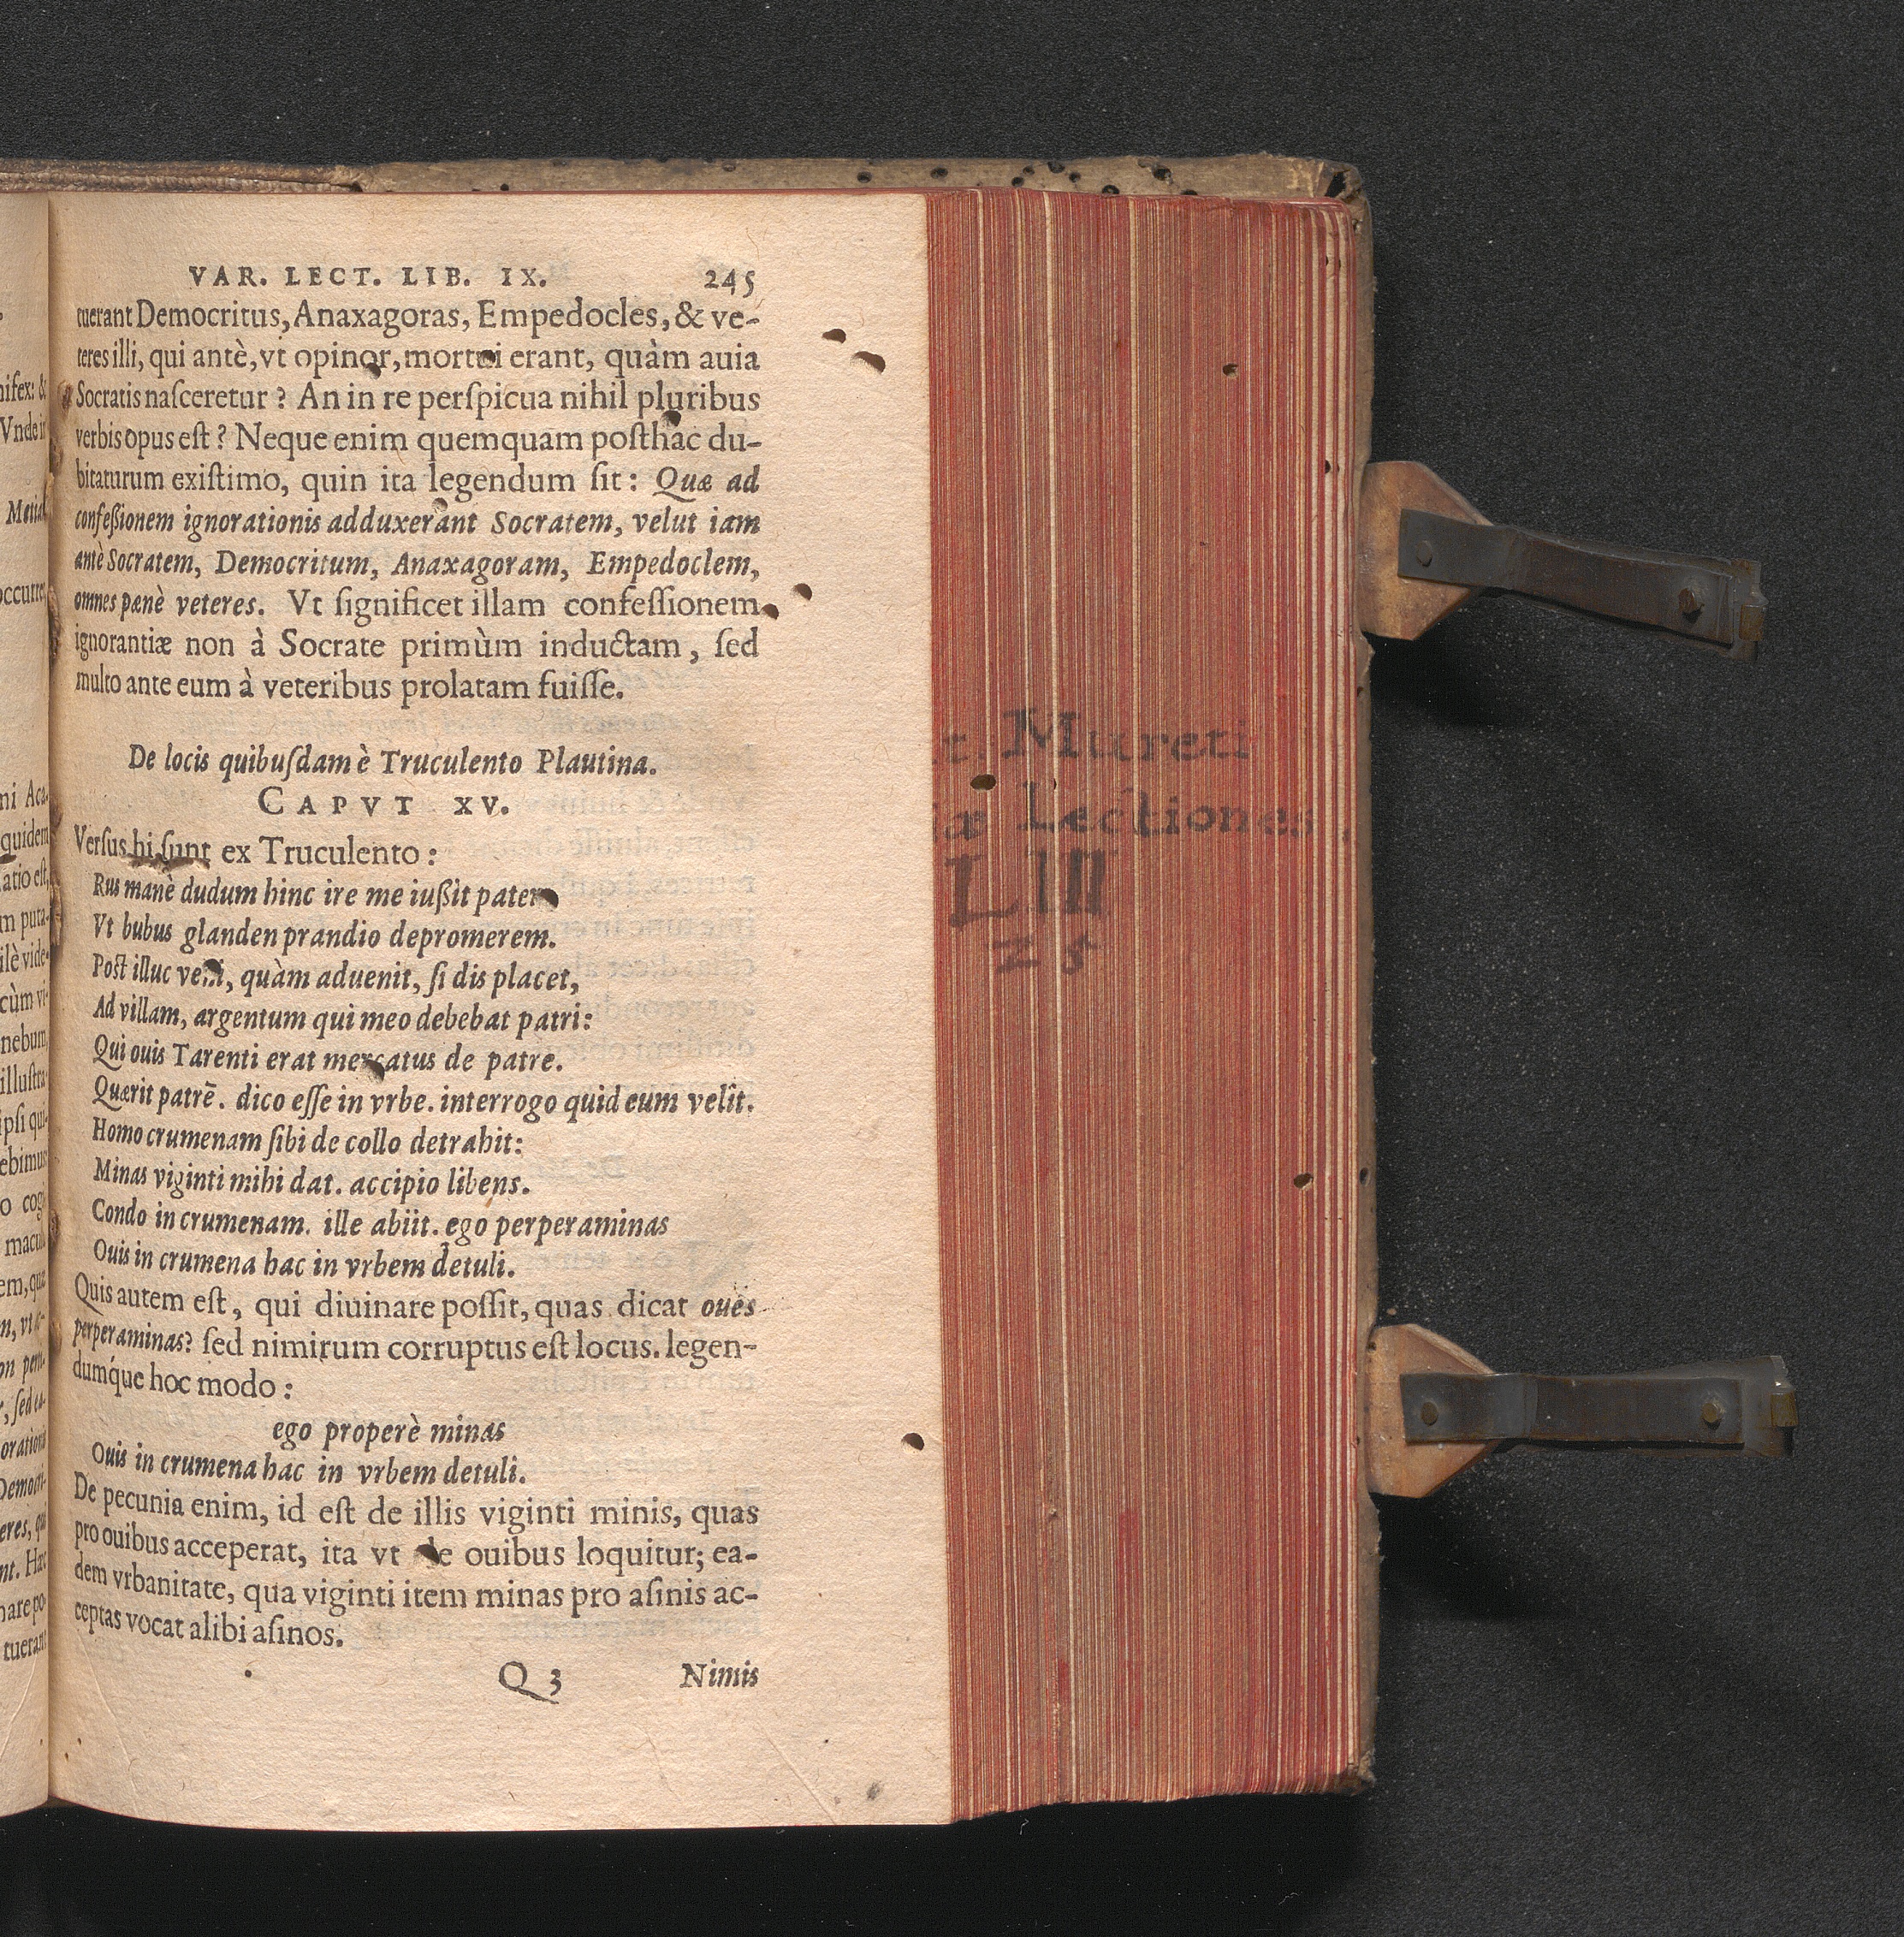 VAR. LECT. LIB. IX. 245
tuerant Democritus, Anaxagoras, Empedocles, & ve-
teres illi, qui antè, vt opinor, mortui erant, quàm auia
Socratis naſceretur? An in re perſpicua nihil pluribus
verbis opus eſt? Neque enim quemquam poſthac du-
bitaturum exiſtimo, quin ita legendum ſit: Quæ ad
confeßionem ignorationis adduxerant Socratem, velut iam
antè Socratem, Democritum, Anaxagoram, Empedoclem,
omnes pænè veteres. Vt ſignificet illam confeſſionem
ignorantiæ non à Socrate primùm inductam, ſed
multo ante eum à veteribus prolatam fuiſſe.
De locis quibuſdam è Truculento Plautina.
CAPVT XV.
Verſus hi ſunt ex Truculento:
Rus manè dudum hinc ire me iußit pater
Vt bubus glanden prandio depromerem.
Poſt illuc veni, quàm aduenit, ſi dis placet,
Ad villam, argentum qui meo debebat patri:
Qui ouis Tarenti erat mercatus de patre.
Quærit patrē. dico eſſe in vrbe. interrogo quid eum velit.
Homo crumenam ſibi de collo detrahit:
Minas viginti mihi dat. accipio libens.
Condo in crumenam. ille abiit. ego perperaminas
Ouis in crumena hac in vrbem detuli.
Quis autem eſt, qui diuinare poſſit, quas dicat oues
perperaminas? ſed nimirum corruptus eſt locus. legen-
dumque hoc modo:
ego properè minas
Ouis in crumena hac in vrbem detuli.
De pecunia enim, id eſt de illis viginti minis, quas
pro ouibus acceperat, ita vt de ouibus loquitur; ea-
dem vrbanitate, qua viginti item minas pro aſinis ac-
ceptas vocat alibi aſinos.
Q 3 Nimis
Mureti
Lectiones
LIII
25